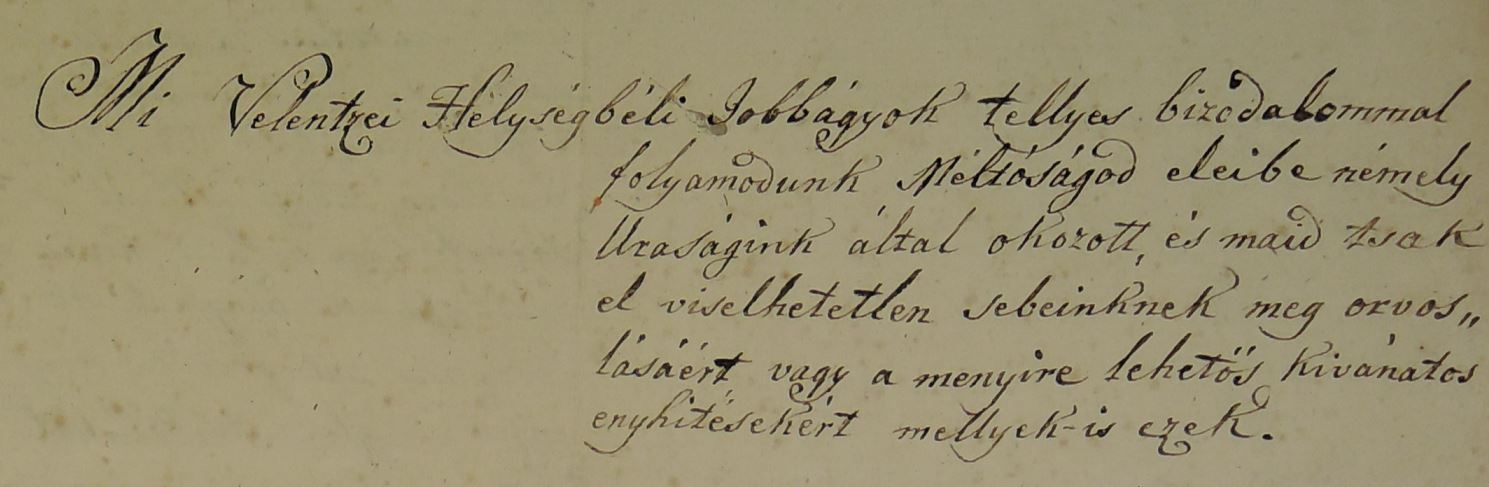 Mi Velentzei Helységbéli Jobbágyok tellyes bizodalommal
folyamodunk Méltóságod eleibe némely
Uraságink által okozott, és maid tsak
el viselhetetlen sebeinknek meg orvos„
lásáért, vagy a menyire lehetős kivánatos
enyhitésekért mellyek-is ezek.